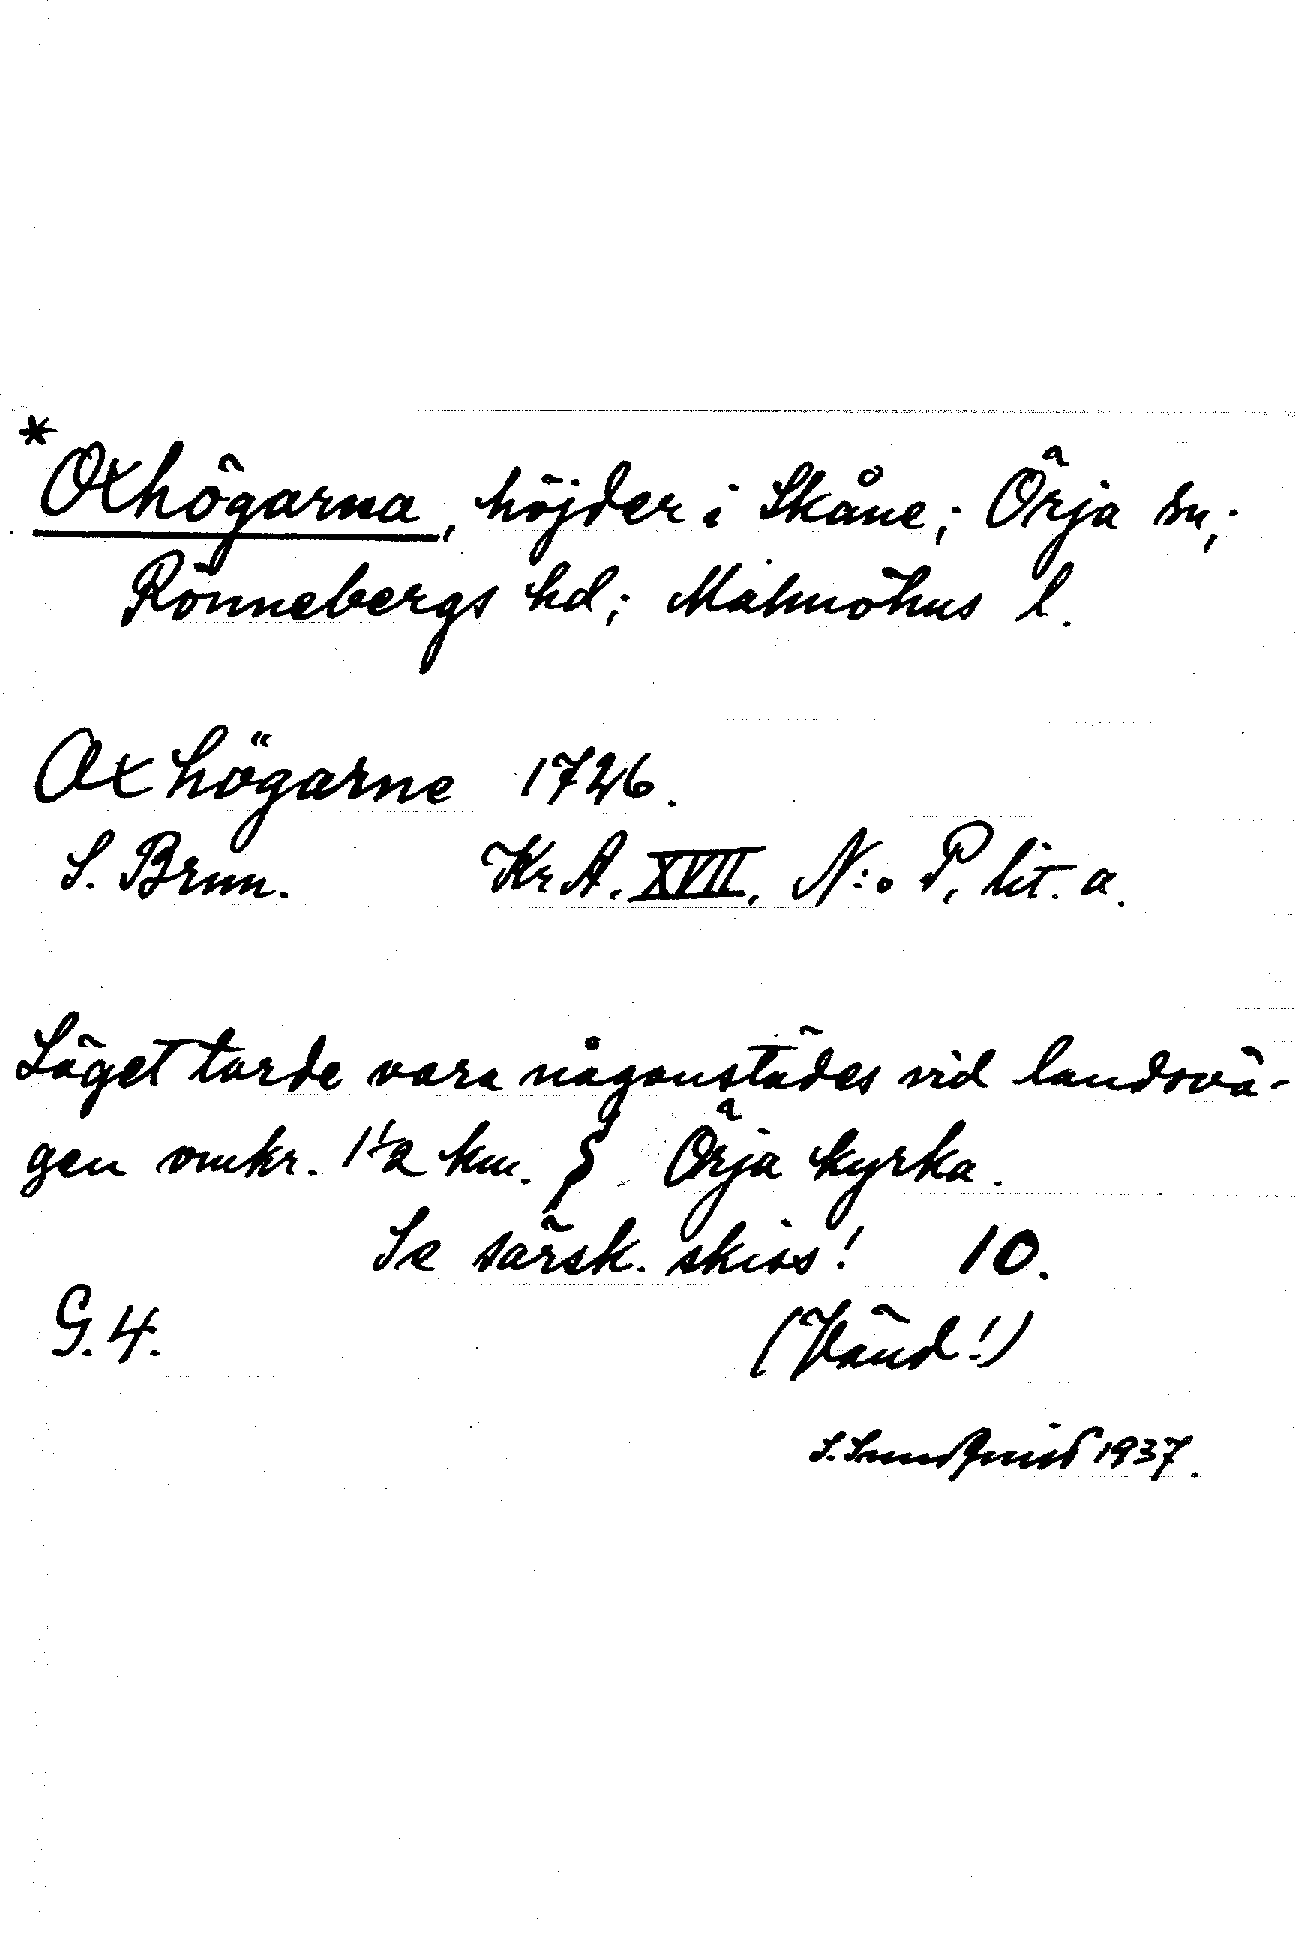 *Oxhögarna, höjder i Skåne; Örja sn;
Rönnebergs hd; Malmöhus l.
Oxhögarne 1726.
S. Brun. Kr A. XVII. N:o P. lit. a.
Läget torde vara någonstädes vid landsvä-
gen omkr. 1½ km. S Örja kyrka.
Se särsk. skiss! 10.
G. 4. (Vänd!)
S. Sundqvist 1937.